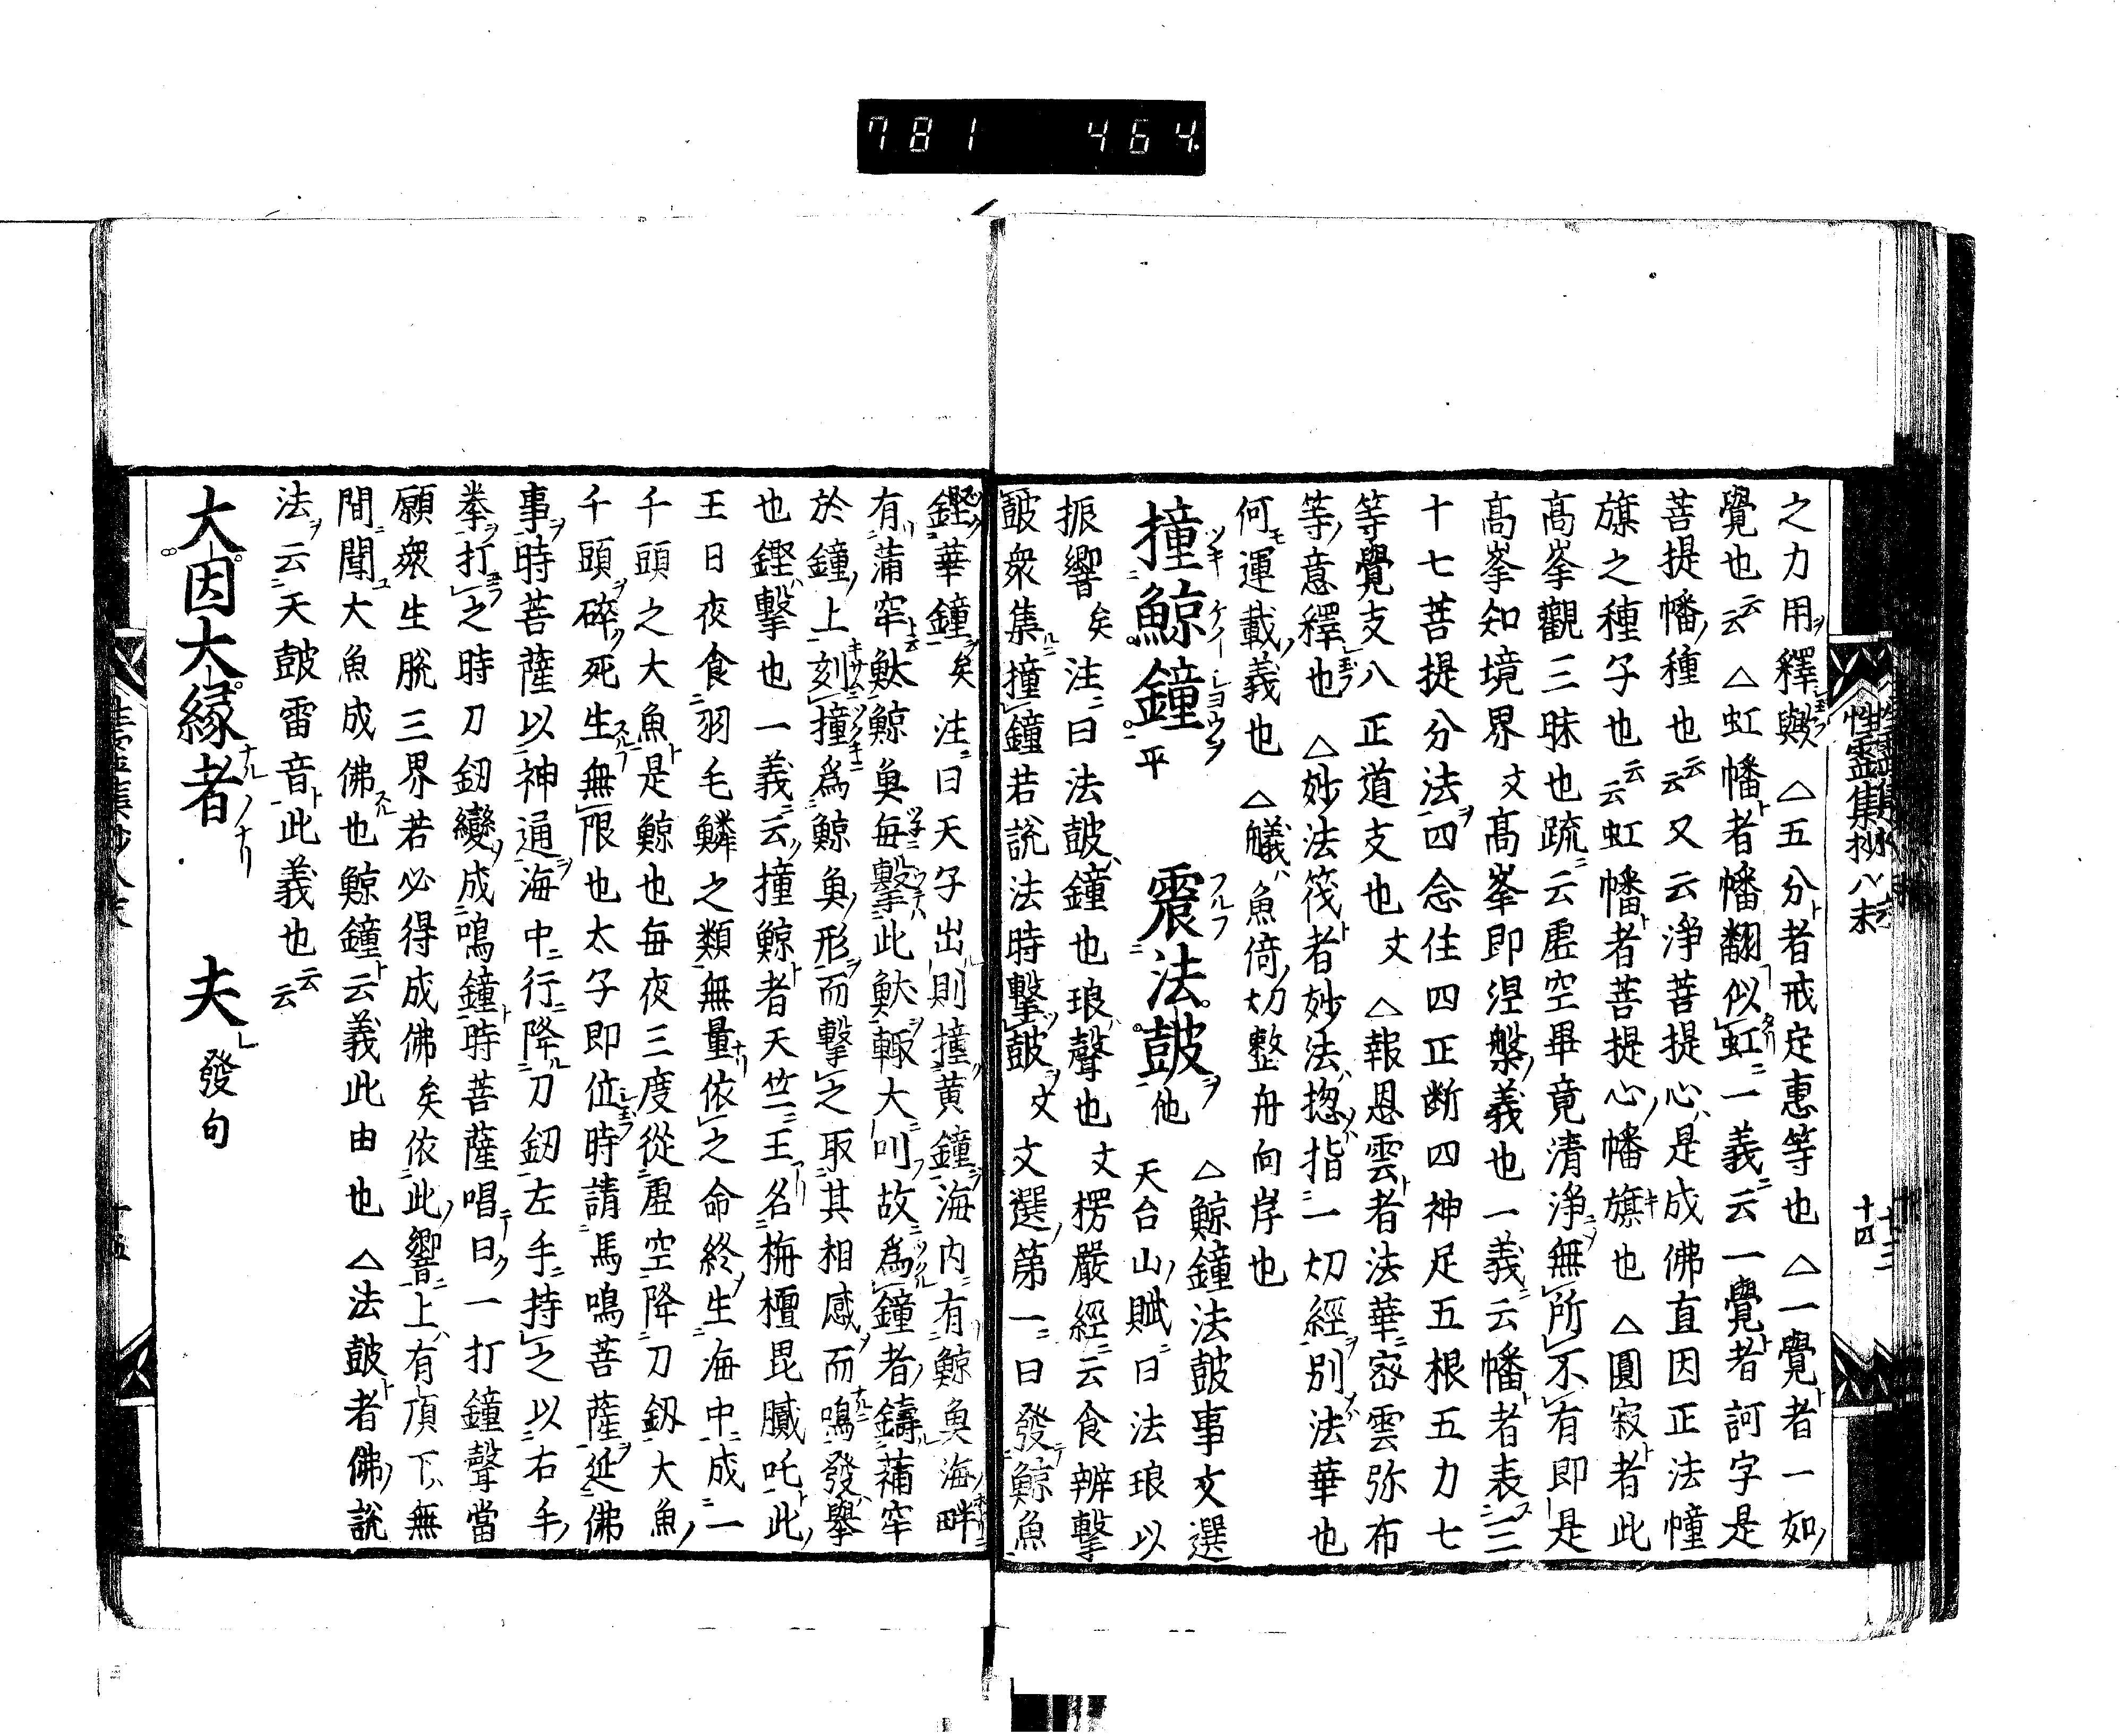 781 464
性霊集抄八末 十四
之力用釋歟△五分者戒定惠等也△一覺者一如
覺也云云△虹幡者幡翻似虹一義云一覺者訶字是
菩提幡種也云云又云浄菩提心是成佛直因正法幢
旗之種子也云云虹幡者菩提心幡旗也△圓寂者此
髙峯觀三昧也疏云虚空畢竟清浄無所不有即是
髙峯知境界文髙峯即涅槃義也一義云幡者表三
十七菩提分法四念住四正断四神足五根五力七
等覺支八正道支也文△報恩雲者法華密雲弥布
等意釋也△妙法筏者妙法揔指一切經別法華也
何運載義也△艤魚倚切整舟向岸也
撞鯨鐘平 震法皷他△鯨鐘法皷事文選
振響矣注曰法皷鐘也琅聲也文楞嚴經云食辨擊
天台山賦曰法琅以
皷衆集撞鐘若説法時擊皷文文選第一曰發鯨魚
鏗華鐘矣注曰天子出則撞黄鐘海内有鯨魚海畔
有蒲牢獣鯨魚毎擊此獣輙大吼故為鐘者鑄蒲牢
於鐘上刻撞為鯨魚形而擊之取其相感而鳴發舉
也鏗擊也一義云撞鯨者天竺王名栴檀毘膩吒此
王日夜食羽毛鱗之類無量依之命終生海中成一
千頭之大魚是鯨也毎夜三度從虚空降刀釼大魚
千頭碎死生無限也太子即位時請馬鳴菩薩延佛
事時菩薩以神通海中行降刀釼左手持之以右手
拳打之時刀釼變成鳴鐘時菩薩唱曰一打鐘聲當
願衆生脱三界若必得成佛矣依此響上有頂下無
間聞大魚成佛也鯨鐘云義此由也△法皷者佛説
法云天皷雷音此義也云云
大因大縁者 夫發句